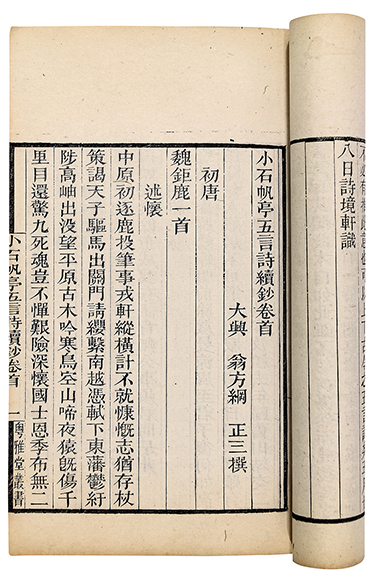 八日詩境軒識
小石帆亭五言詩續鈔卷首
大興 翁方綱 正三撰
初唐
魏鉅鹿一首
述懷
中原初逐鹿投筆事戎軒縱橫計不就慷慨志猶存杖
策謁天子驅馬出關門請纓繫南越憑軾下東藩鬱紆
陟高岫出沒望平原古木吟寒鳥空山啼夜猿旣傷千
里目還驚九死魂豈不憚艱險深懷國士恩季布無二
小石帆亭五言詩續鈔卷首 一 粵雅堂叢書